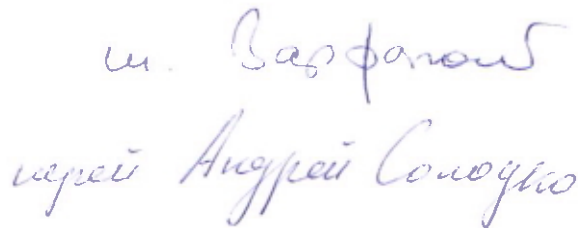 и. Варфоломей
иерей Андрей Солодко